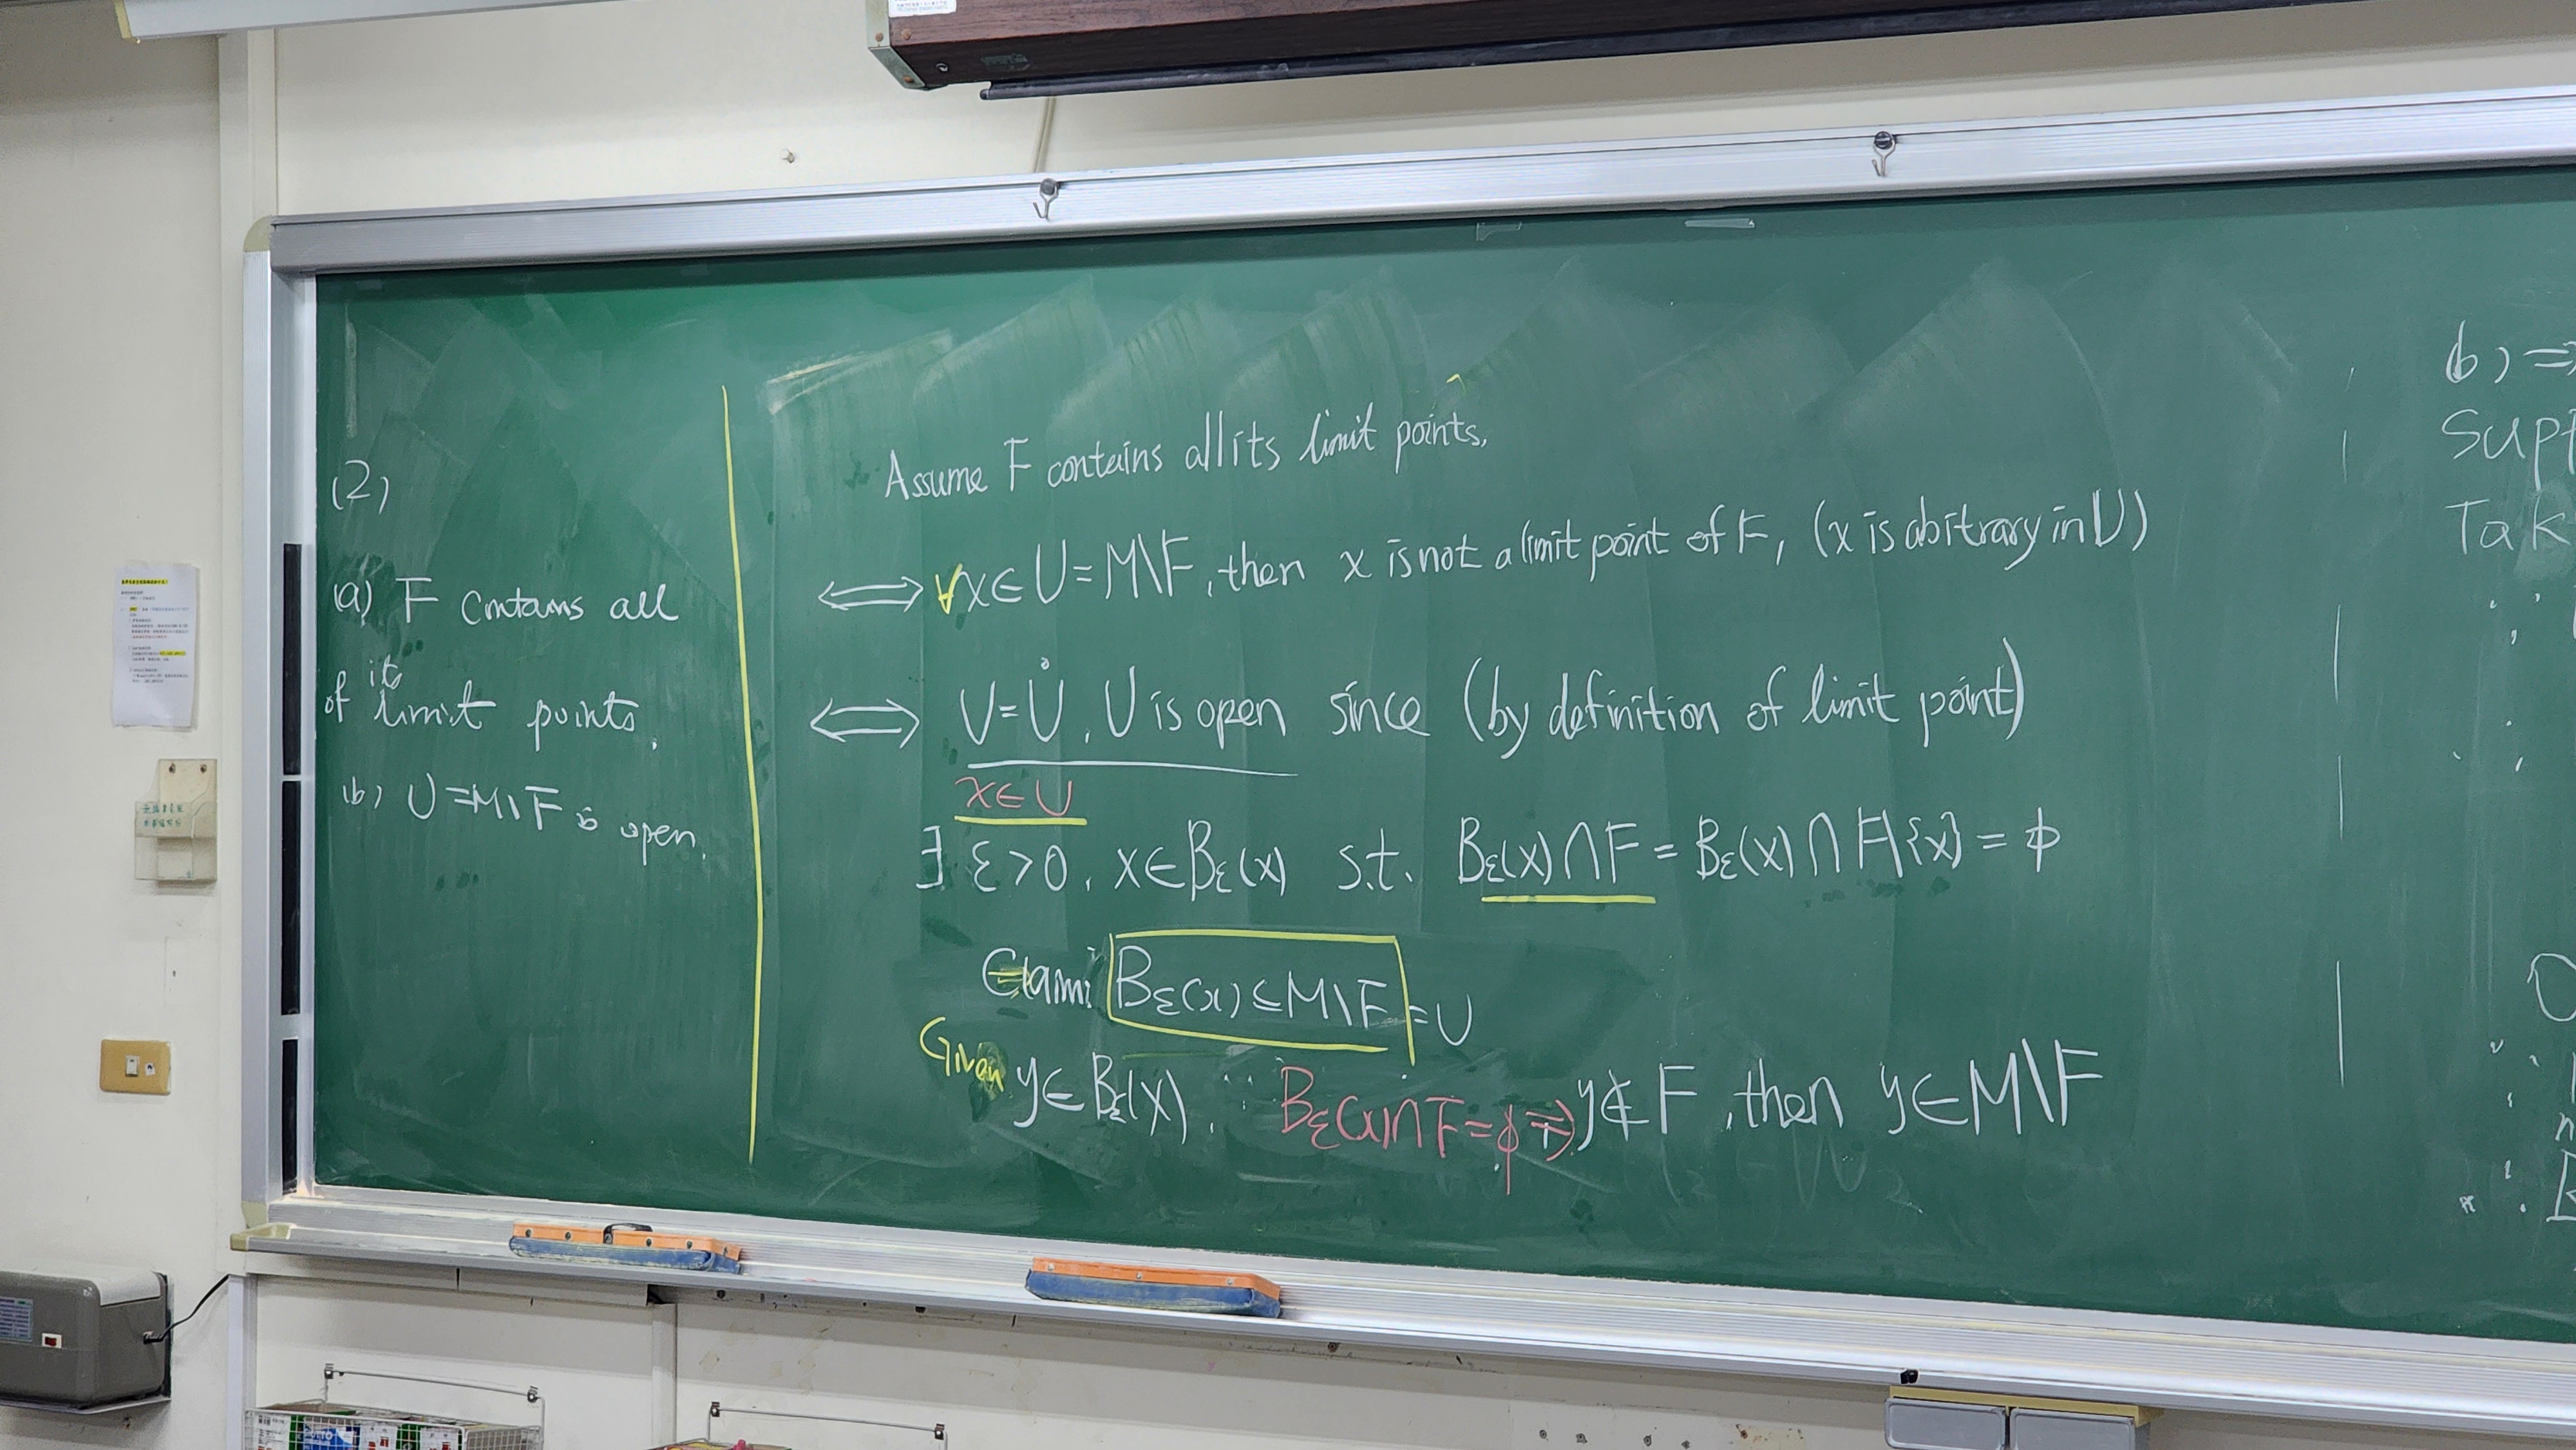 (2)
(a) F contains all
of its
limit points.
(b) U = M\F is open.
Assume F contains all its limit points.
⟺ ∀x∈U=M\F, then x is not a limit point of F, (x is abitrary in U)
⟺ U=Ů, U is open since (by definition of limit point)
x∈U
∃ ε>0, x∈Bε(x) s.t. Bε(x)∩F = Bε(x)∩F\{x} = ϕ
Claim: Bε(x)⊆M\F = U
Given y∈Bε(x). ∵ Bε(x)∩F=ϕ ⇒ y∉F, then y∈M\F
b) ⇒